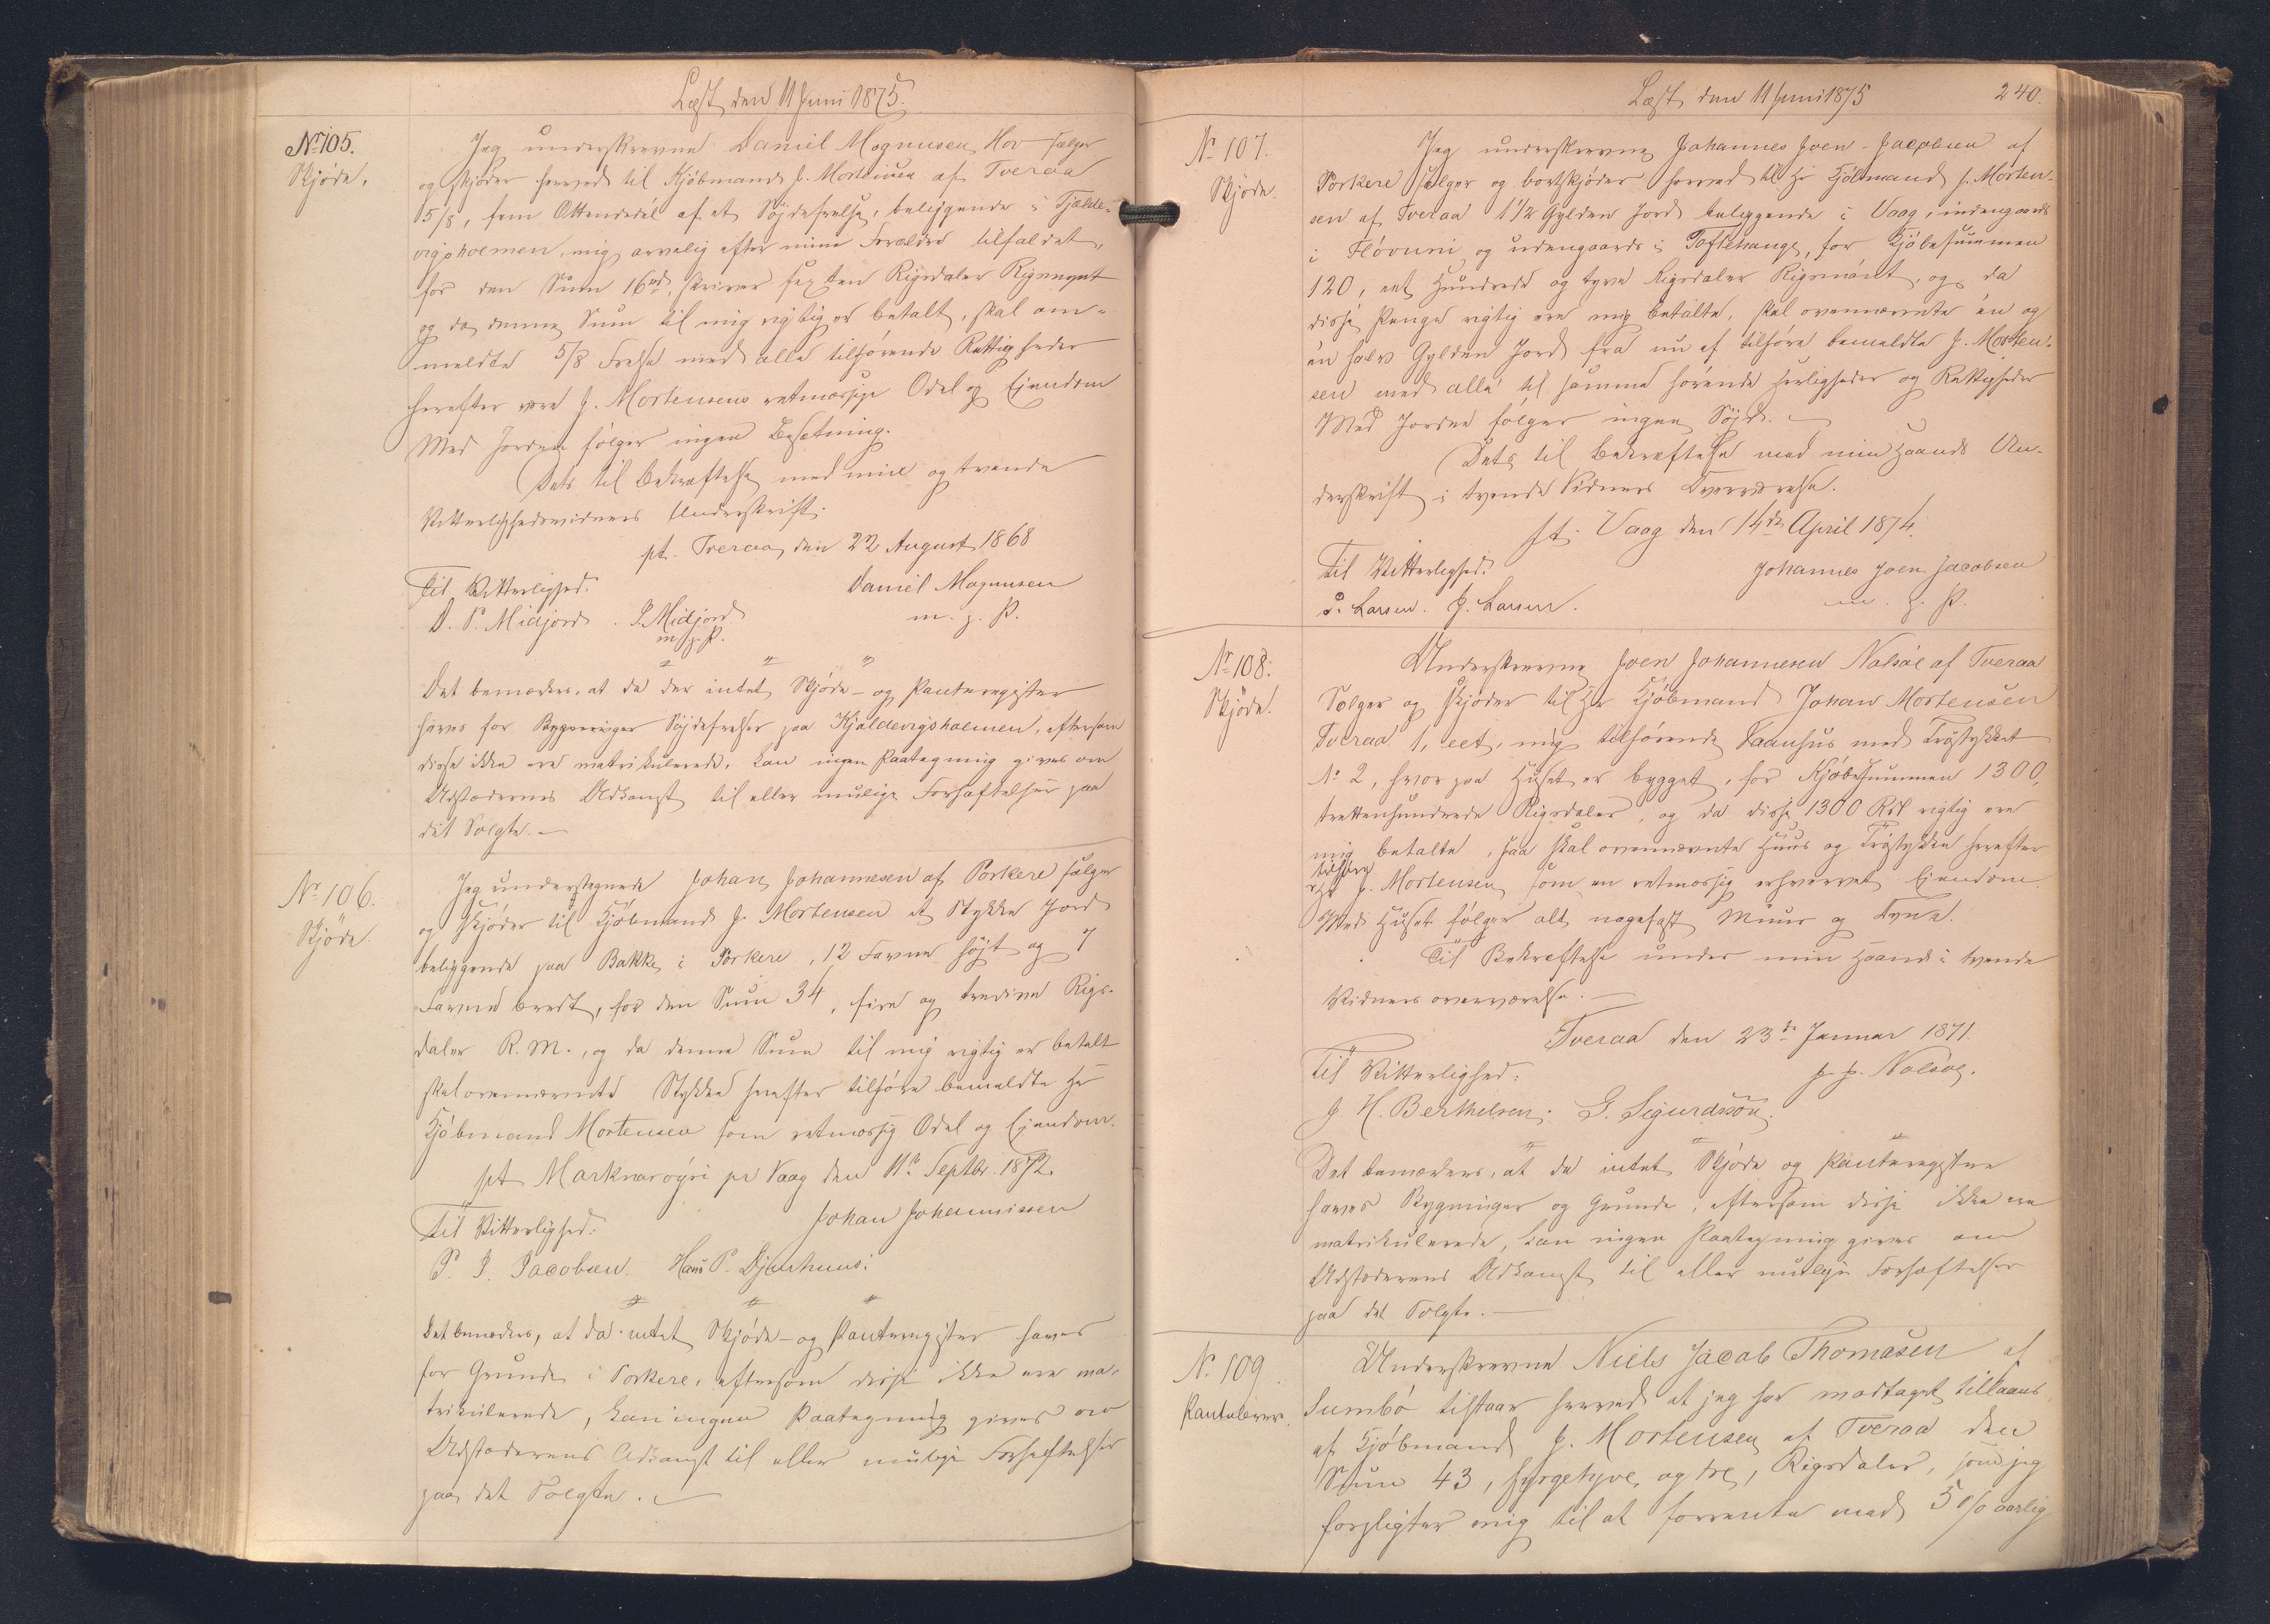 Læst den 11 Juni 1875.
No 105.
Skjøde.
Jeg underskrevne Daniel Magnusen Hov sælger
og skjøder herved til Kjøbmand J. Mortensen af Tveraa
5/8, fem Ottendedel af et Søjdefrelse, beliggende i Tjælde-
vigsholmen, mig arvelig efter mine Forældre tilfaldet,
for den Sum 16rd, skriver sexten Rigsdaler Rigsmynt
og da denne Sum til mig rigtig er betalt, skal om-
meldte 5/8 Frelse med alle tilhørende Rettigheder
herefter være J. Mortensens retmæssige Odel og Ejendom
Med Jorden følger ingen Besætning.
Dets til Bekræftelse med min og tvende
Vitterlighedsvidners Underskrift.
pt. Tveraa, den 22 August 1868
Til Vitterlighed:
Daniel Magnusen
D. P. Midjord. J. Midjord
m. p. P.
m/p. P.
Det bemærkes, at da der intet Skjøde- og Panteregister
haves for Bygninger Søjdefrelser paa Kjaldevigsholmen, eftersom
disse ikke ere matrikulerede, kan ingen Paategning gives om
Udstederens Adkomst til eller mulige Forhæftelser paa
det Solgte. –
No 106.
Skjøde.
Jeg undertegnede Johan Johannesen af Porkere sælger
og skjøder til Kjøbmand J. Mortensen et Stykke Jord
beliggende paa Bakke i Porkere, 12 Favne højt og 7
Favne bredt, for den Sum 34, fire og tredive Rigs-
daler R. M., og da denne Sum til mig rigtig er betalt
skal ovennævnte Stykke herefter tilhøre bemeldte Hr
Kjøbmand Mortensen som retmæssig Odel og Ejendom.
pt Marknarøyri pr Vaag den 11te Septbr. 1872.
Til Vitterlighed:
Johan Johannissen
P. J. Jacobsen. Hans P. Djurhuus.
Det bemærkes, at da intet Skjøde- og Panteregister haves
for Grunde i Porkere, eftersom disse ikke ere ma-
trikulerede, kan ingen Paategning gives om
Udstederens Adkomst til eller mulige Forhæftelser
paa det Solgte. –
Læst den 11 Juni 1875
240.
No 107.
Skjøde
Jeg underskrevne Johannes Joen Jacobsen af
Porkere sælger og bortskjøder herved til Hr Kjøbmand J. Morten-
sen af Tveraa 1 1/2 Gylden Jord beliggende i Vaag, indengaards
i Hövuni og udengaards i Toftehauge, for Kjøbesummen
120, eet Hundrede og tyve Rigsdaler Rigsmønt, og da
disse Penge rigtig ere mig betalte, skal ovennævnte én og
én halv Gylden Jord fra nu af tilhøre bemeldte J. Morten-
sen med alle til samme hørende Herligheder og Rettigheder
Med Jorden følger ingen Søjd. –
Dets til Bekræftelse med min Haands Un-
derskrift i tvende Vidners Overværelse.
pt. Vaag den 14de April 1874.
Til Vitterlighed:
Johannes Joen Jacobsen
P. Larsen. J. Larsen.
m. p. P.
No 108.
Skjøde.
Underskrevne Joen Johannesen Nolsøe af Tveraa
Sælger og skjøder til Hr Kjøbmand Johan Mortensen
Tveraa 1, eet, mig tilhørende Vaanhus med Træstykket
No 2, hvorpaa Huset er bygget, for Kjøbesummen 1300,
trettenhundrede Rigsdaler, og da disse 1300 Rdl rigtig ere
mig betalte, saa skal ovennævnte Huus og Træstykke herefter
tilhøre
J. Mortensen som en retmæssig erhvervet Ejendom
Med Huset følger alt nagefast Muur og
Til Bekræftelse under min Haand i tvende
Vidners overværelse. –
Tveraa den 23de Januar 1871.
Til Vitterlighed:
J. J. Nolsøe.
J. H. Berthelsen. G. Sigurdsson.
Det bemærkes, at da intet Skjøde og Panteregister
haves Bygninger og Grunde, eftersom disse ikke ere
matrikulerede, kan ingen Paategning gives om
Udstederens Adkomst til eller mulige Forhæftelser
paa det Solgte. –
No 109.
Pantebrev.
Underskrevne Niels Jacob Thomasen af
Sumbø tilstaar herved at jeg har modtaget tillaans
af Kjøbmand J. Mortensen af Tveraa den
Sum 43, fyrgetyve og tre, Rigsdaler, som jeg
forpligter mig til at forrente med 5 % aarlig